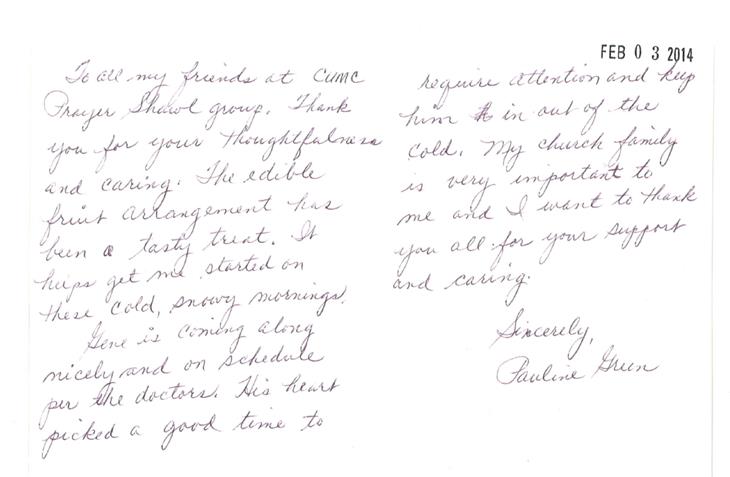 To all my friends at CUMC
Prayer Shawl group. Thank
you for your thoughtfulness
and caring. The edible
fruit arrangement has
been a tasty treat. It
helps get me started on
these cold, snowy mornings.
Gene is coming along
nicely and on schedule
per the doctors. His heart
picked a good time to
FEB 03 2014
require attention and keep
him in out of the
cold. My church family
is very important to
me and I want to thank
you all for your support
and caring.
Sincerely,
Pauline Green